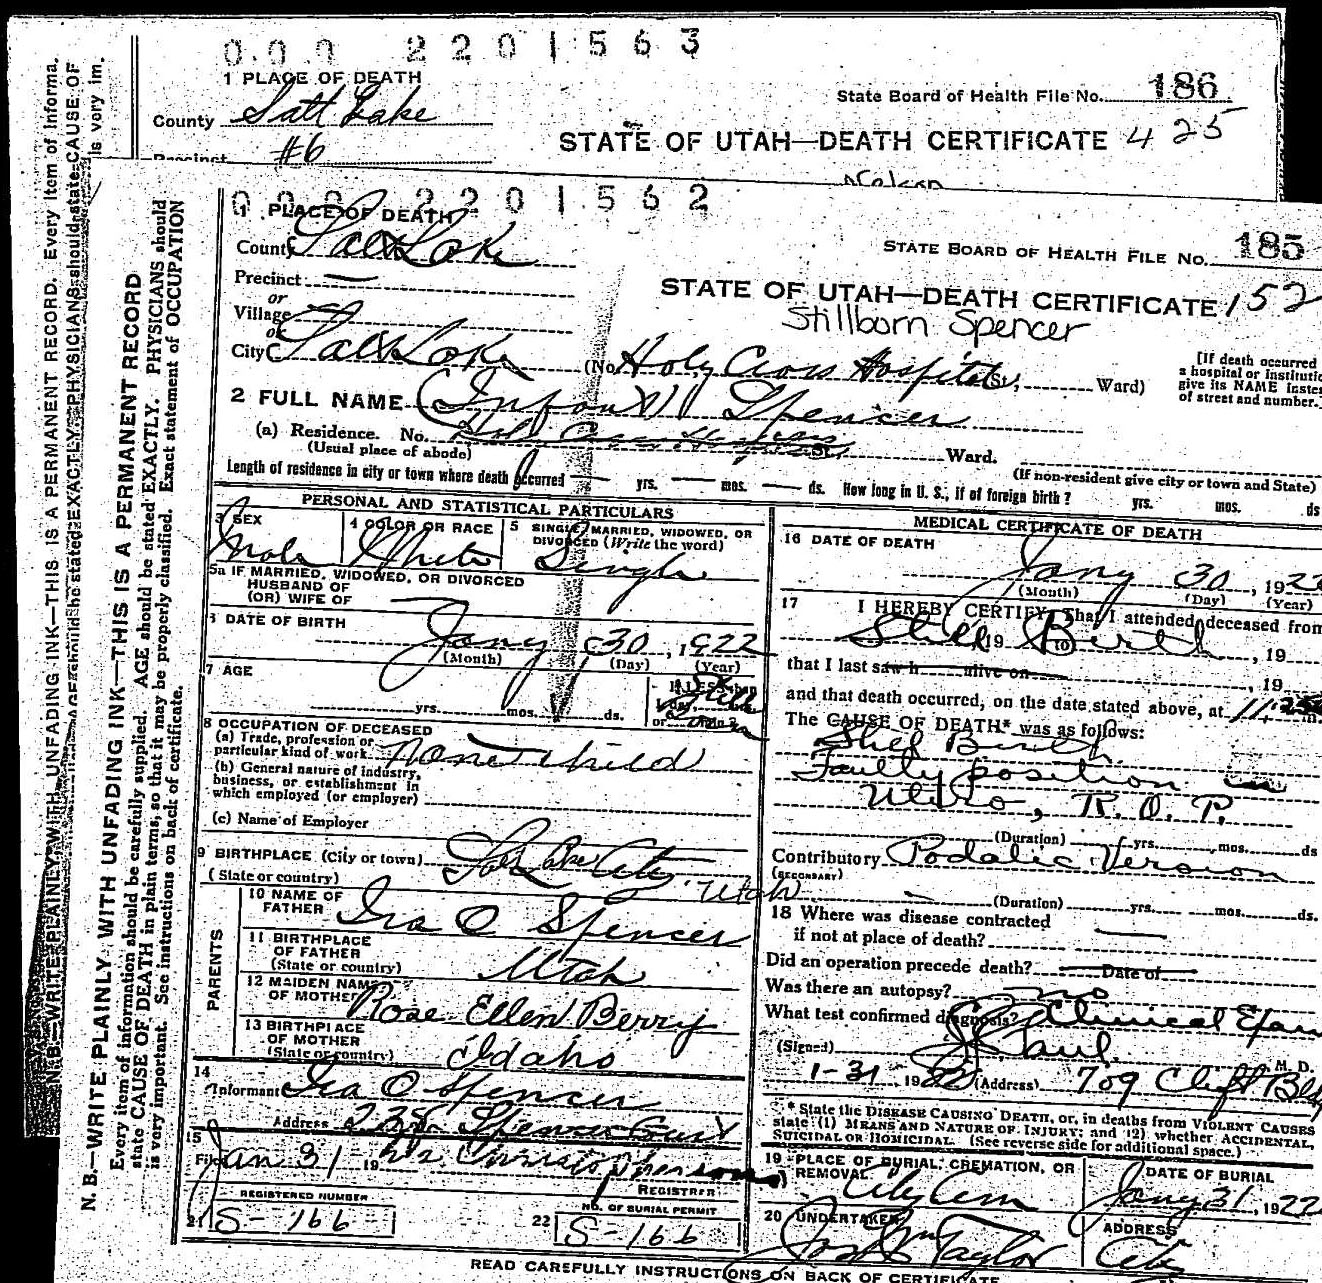 000 2201563
1 PLACE OF DEATH
State Board of Health File No. 186
County Salt Lake
STATE OF UTAH—DEATH CERTIFICATE 425
Precinct #6
000 2201562
1 PLACE OF DEATH
County Salt Lake
STATE BOARD OF HEALTH FILE NO. 185
Precinct —
or
STATE OF UTAH—DEATH CERTIFICATE 152
Village
Stillborn Spencer
or
City Salt Lake (No. Holy Cross Hospital St; Ward)
[If death occurred
a hospital or institutio
give its NAME instea
of street and number.
2 FULL NAME (Infant) Spencer
(a) Residence. No. Holy Cross Hospital St. Ward.
(Usual place of abode)
(If non-resident give city or town and State)
Length of residence in city or town where death occurred — yrs. — mos. — ds. How long in U. S., if of foreign birth? yrs. mos. ds
PERSONAL AND STATISTICAL PARTICULARS
3 SEX
Male
4 COLOR OR RACE
White
5 SINGLE, MARRIED, WIDOWED, OR
DIVORCED (Write the word)
Single
5a IF MARRIED, WIDOWED, OR DIVORCED
HUSBAND OF
(OR) WIFE OF —
6 DATE OF BIRTH
Jany 30, 1922
(Month) (Day) (Year)
7 AGE
yrs. mos. ds.
If LESS than
1 day,
or min.
Still
Born
8 OCCUPATION OF DECEASED
(a) Trade, profession or
particular kind of work none child
(b) General nature of industry,
business, or establishment in
which employed (or employer)
(c) Name of Employer
9 BIRTHPLACE (City or town) Salt Lake City
(State or country) Utah
PARENTS
10 NAME OF
FATHER Ira O Spencer
11 BIRTHPLACE
OF FATHER
(State or country) Utah
12 MAIDEN NAME
OF MOTHER Rose Ellen Berry
13 BIRTHPLACE
OF MOTHER
(State or country) Idaho
14
Informant Ira O Spencer
Address 238 Spencer Court
15
Filed Jan 31 1922
REGISTRAR
REGISTERED NUMBER
21 S-166
NO. OF BURIAL PERMIT
22 S-166
MEDICAL CERTIFICATE OF DEATH
16 DATE OF DEATH
Jany 30, 1922
(Month) (Day) (Year)
17 I HEREBY CERTIFY, That I attended deceased from
Still Birth 19 to , 19
that I last saw h alive on , 19
and that death occurred, on the date stated above, at 11:25 m.
The CAUSE OF DEATH* was as follows:
Still Birth
Faulty position in
Utero, R.O.P.
(Duration) yrs. mos. ds
Contributory Podalic Version
(SECONDARY)
(Duration) yrs. mos. ds.
18 Where was disease contracted
if not at place of death? —
Did an operation precede death? — Date of —
Was there an autopsy? no
What test confirmed diagnosis? Clinical Exam
(Signed) Paul M. D.
1-31 1922 (Address) 709 Clift Bldg
* State the DISEASE CAUSING DEATH, or, in deaths from VIOLENT CAUSES
state (1) MEANS AND NATURE OF INJURY; and (2) whether ACCIDENTAL,
SUICIDAL OR HOMICIDAL. (See reverse side for additional space.)
19 PLACE OF BURIAL, CREMATION, OR
REMOVAL City Cem
DATE OF BURIAL
Jany 31, 1922
20 UNDERTAKER
Jos Wm Taylor
ADDRESS
City
READ CAREFULLY INSTRUCTIONS ON BACK OF CERTIFICATE
N. B.—WRITE PLAINLY, WITH UNFADING INK—THIS IS A PERMANENT RECORD
Every item of information should be carefully supplied. AGE should be stated EXACTLY. PHYSICIANS should
state CAUSE OF DEATH in plain terms, so that it may be properly classified. Exact statement of OCCUPATION
is very important. See instructions on back of certificate.
N. B.—WRITE PLAINLY, WITH UNFADING INK—THIS IS A PERMANENT RECORD. Every item of informa.
should be stated EXACTLY. PHYSICIANS should state CAUSE OF
is very im.